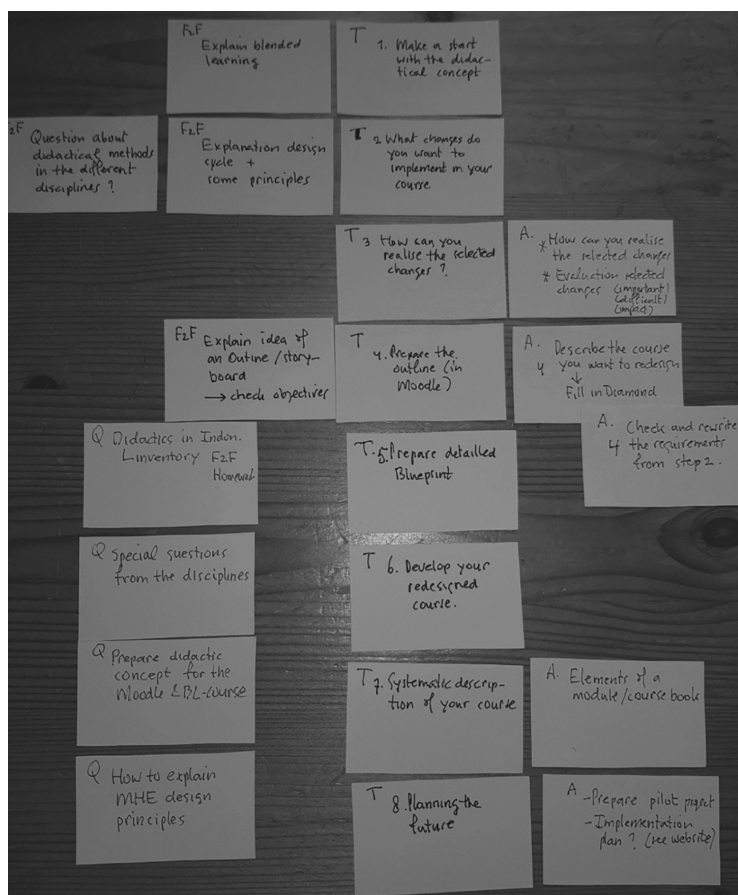 F2F
Explain blended
learning
T
1. Make a start
with the didac-
tical concept
F2F
Question about
didactical methods
in the different
disciplines ?
F2F
Explanation design
cycle +
some principles
T
2 What changes do
you want to
implement in your
course
T 3 How can you
realise the selected
changes ?
A.
* How can you realise
the selected changes
* Evaluation selected
changes (important)
(difficult)
(impact)
F2F Explain idea of
an Outline / story-
board
→ check objectives
T
4. Prepare the
outline (in
Moodle)
A.
4
Describe the course
you want to redesign
↓
Fill in Diamond
A.
4
Check and rewrite
the requirements
from step 2.
Q Didactics in Indon.
inventory F2F
Homework
T. 5. Prepare detailled
Blueprint
Q Special questions
from the disciplines
T 6. Develop your
redesigned
course.
Q Prepare didactic
concept for the
Moodle & BL-course
T 7. Systematic descrip-
tion of your course
A. Elements of a
module/course book
Q How to explain
MHE design
principles
T
8. Planning the
future
A
- Prepare pilot project
- Implementation
plan ? (see website)